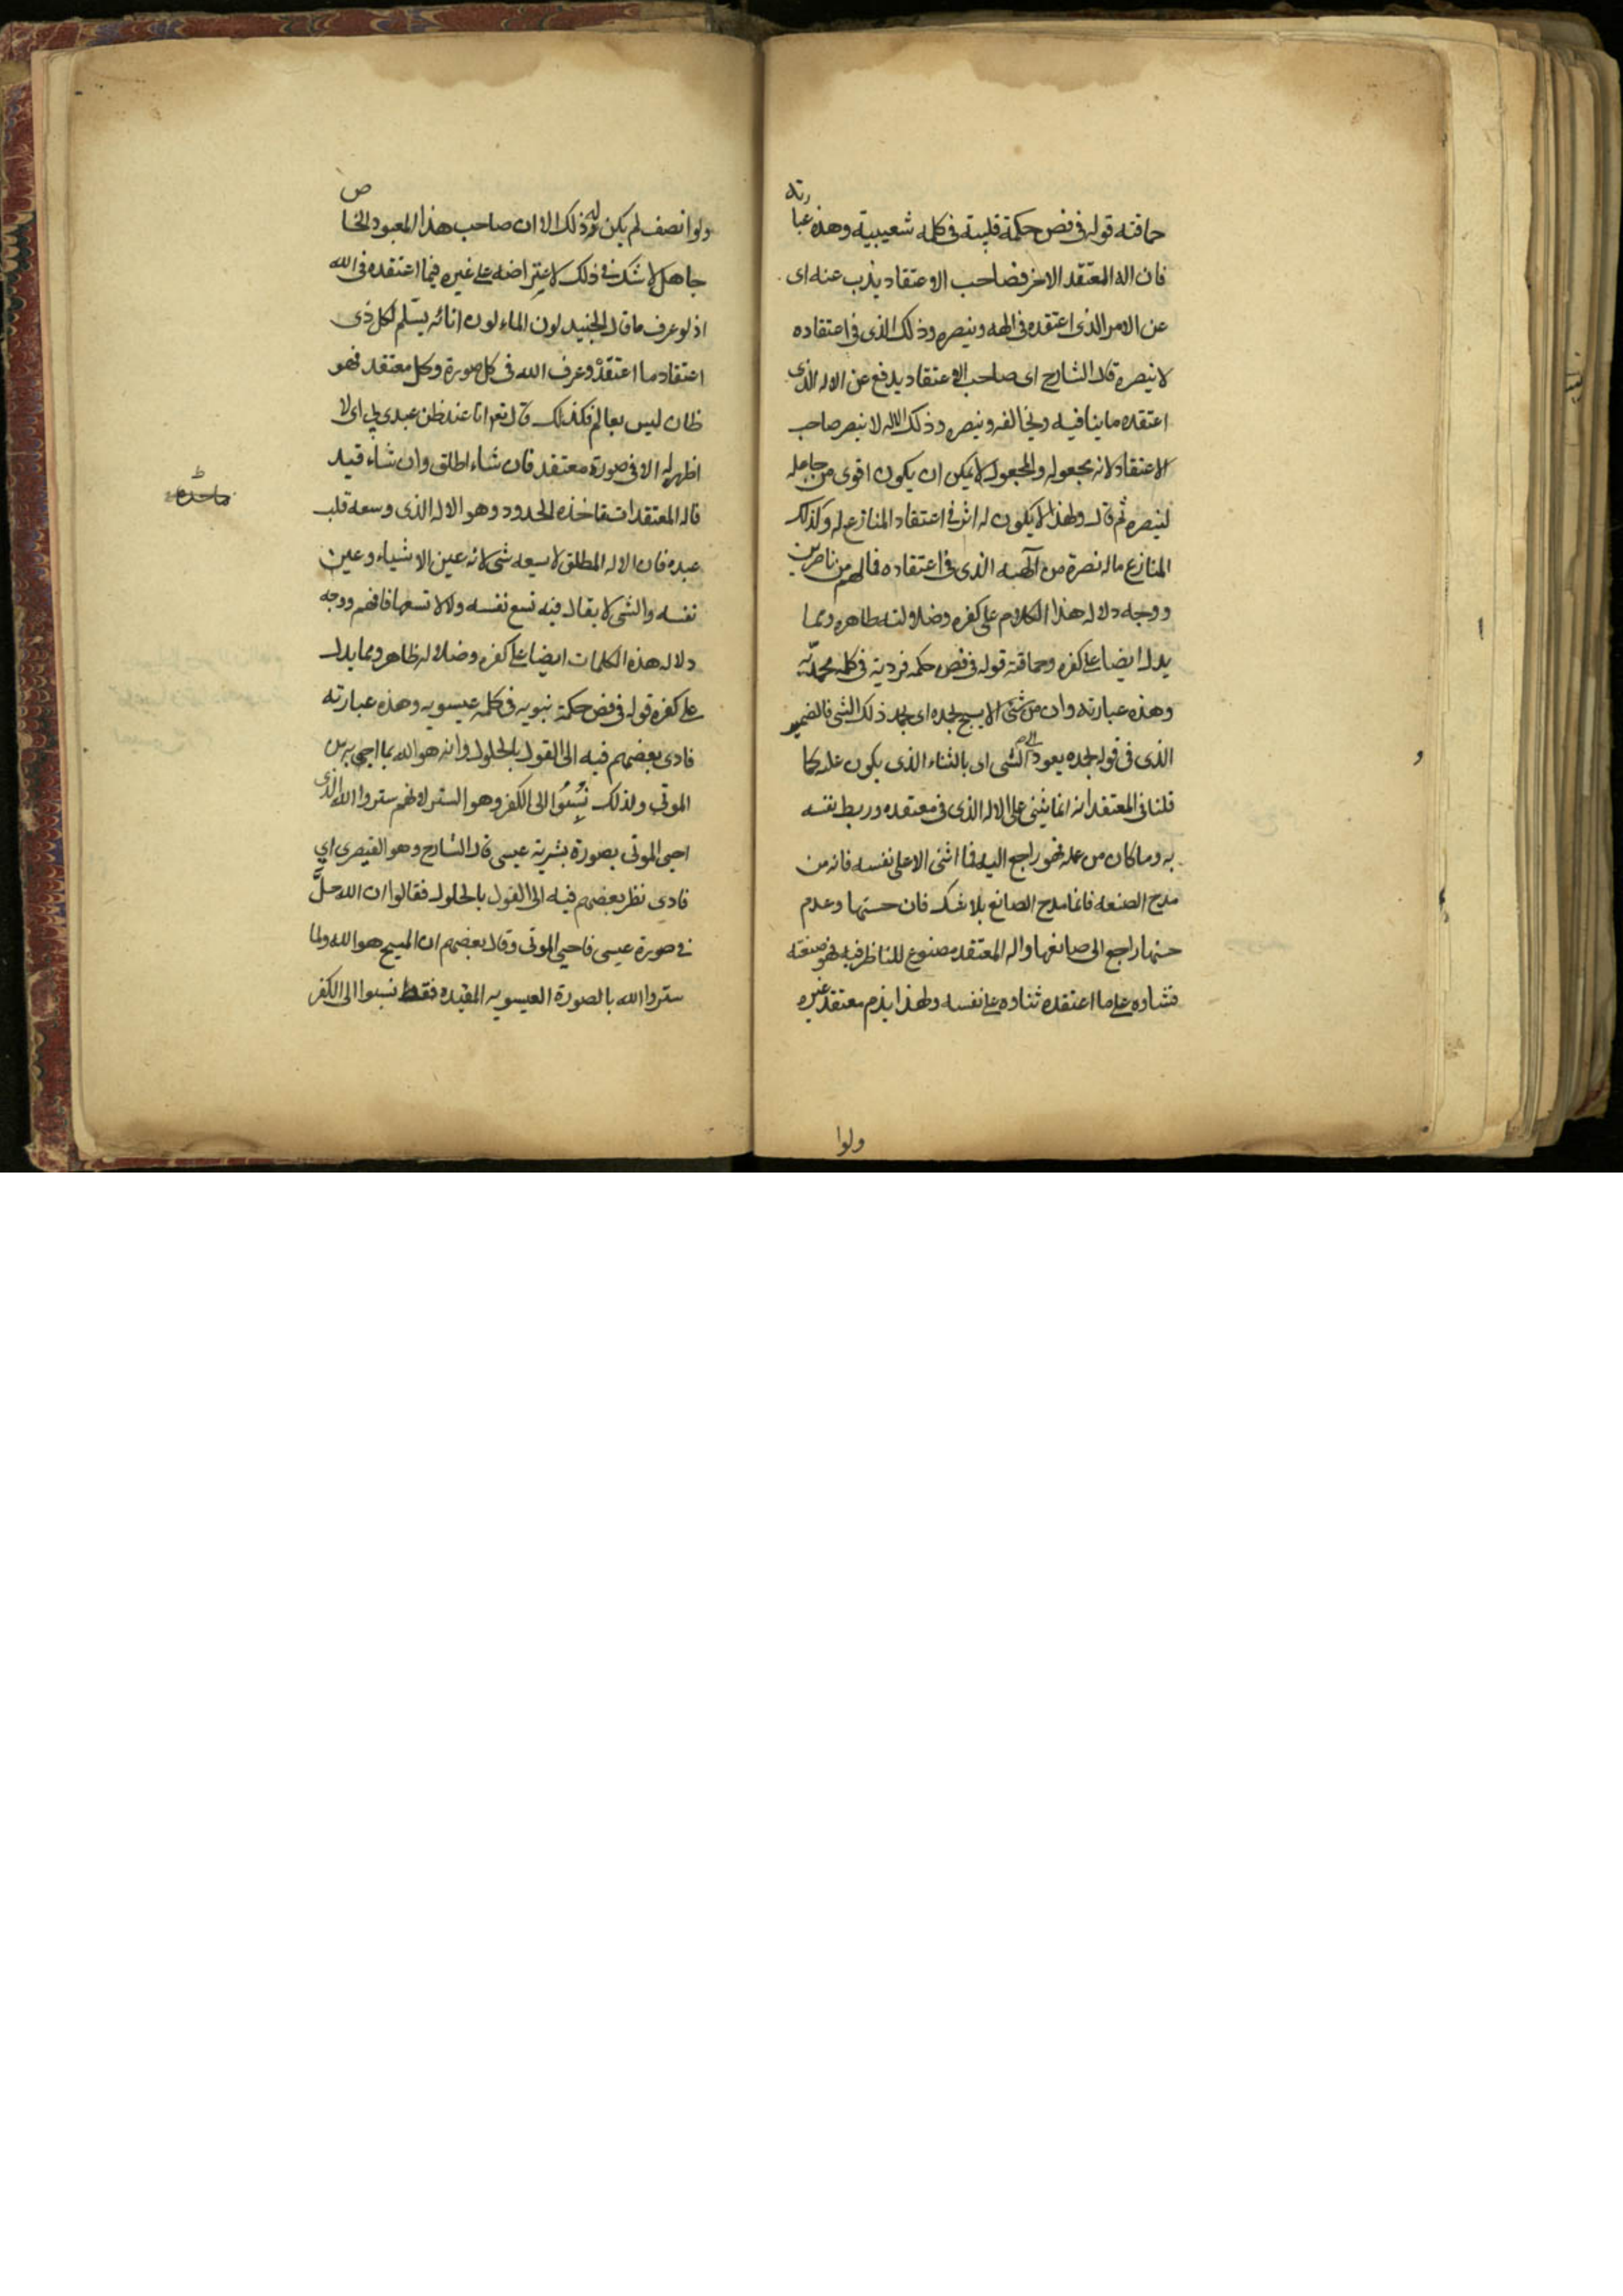 حماقته قوله فى فص حكمة قلبية فى كلمه شعيبية وهذه عبارته
فان اله المعتقد الاخر فصاحب الاعتقاد يذب عنه اى
عن الامر الذى اعتقده فى الهه وينصره وذلك الذى فى اعتقاده
لا ينصره قال الشارح اى صاحب الاعتقاد يدفع عن الاله الذى
اعتقده ما ينافيه ويخالفه وينصره وذلك الاله لا ينصر صاحب
الاعتقاد لانه مجعوله والمجعول لا يمكن ان يكون اقوى من جاعله
لينصره ثم قال ولهذا لا يكون له اثر فى اعتقاد المنازع له وكذلك
المنازع ماله نصرة من آلهه الذى فى اعتقاده فما لهم من ناصرين
ووجه دلاله هذا الكلام على كفره وضلالته ظاهره ومما
يدل ايضا على كفره وحماقته قوله فى فص حكمه فردية فى كلمه محمديّه
وهذه عبارته وان من شئ الا يسبح بحمده اى بحمد ذلك الشئ فالضمير
الذى فى قوله بحمده يعود الى الشئ اى بالثناء الذى يكون عليه كما
قلنا فى المعتقد انه انما يثنى على الاله الذى فى معتقده وربط نفسه
به وما كان من عمله فهو راجع اليه فما اثنى الا على نفسه فانه من
مدح الصنعه فانما مدح الصانع بلا شك فان حسنها وعدم
حسنها راجع الى صانعها واله المعتقد مصنوع للناظر فيه فهو صنعته
فثناوه على ما اعتقده ثناوه على نفسه ولهذا يذم معتقد غيره
ولوا
ولو انصف لم يكن له ذلك الا ان صاحب هذا المعبود الخاص
جاهل لا شك فى ذلك لاعتراضه على غيره فيما اعتقده فى الله
اذ لو عرف ما قال الجنيد لون الماء لون انائه يسّلم لكل ذى
اعتقاد ما اعتقدْ وعرف الله فى كل صورة وكل معتقد فهو
ظان ليس بعالم فكذلك قال تعم انا عند ظن عبدى بى اى لا
اظهر له الا فى صورة معتقد فان شاء اطلق وان شاء قيد
فاله المعتقدات تاخذه الحدود وهو الاله الذى وسعه قلب
عبده فان الاله المطلق لا يسعه شئ لانه عين الاشياء وعين
نفسه والشئ لا يقال فيه تسع نفسه ولا لا تسعها فافهم ووجه
دلاله هذه الكلمات ايضا على كفره وضلاله ظاهر ومما يدل
على كفره قوله فى فص حكمة نبويه فى كلمه عيسويه وهذه عبارته
فادى بعضهم فيه الى القول بالحلول وانه هو الله بما احيى به من
الموتى ولذلك نُسِبُوا الى الكفر وهو الستر لانهم ستروا الله الذى
احيى الموتى بصورة بشرية عيسى قال الشارح وهو القيصرى اى
فادى نظر بعضهم فيه الى القول بالحلول فقالوا ان الله حلّ
فى صورة عيسى فاحيى الموتى وقال بعضهم ان المسيح هو الله ولما
ستروا الله بالصورة العيسويه المقيده فقط نسبوا الى الكفر